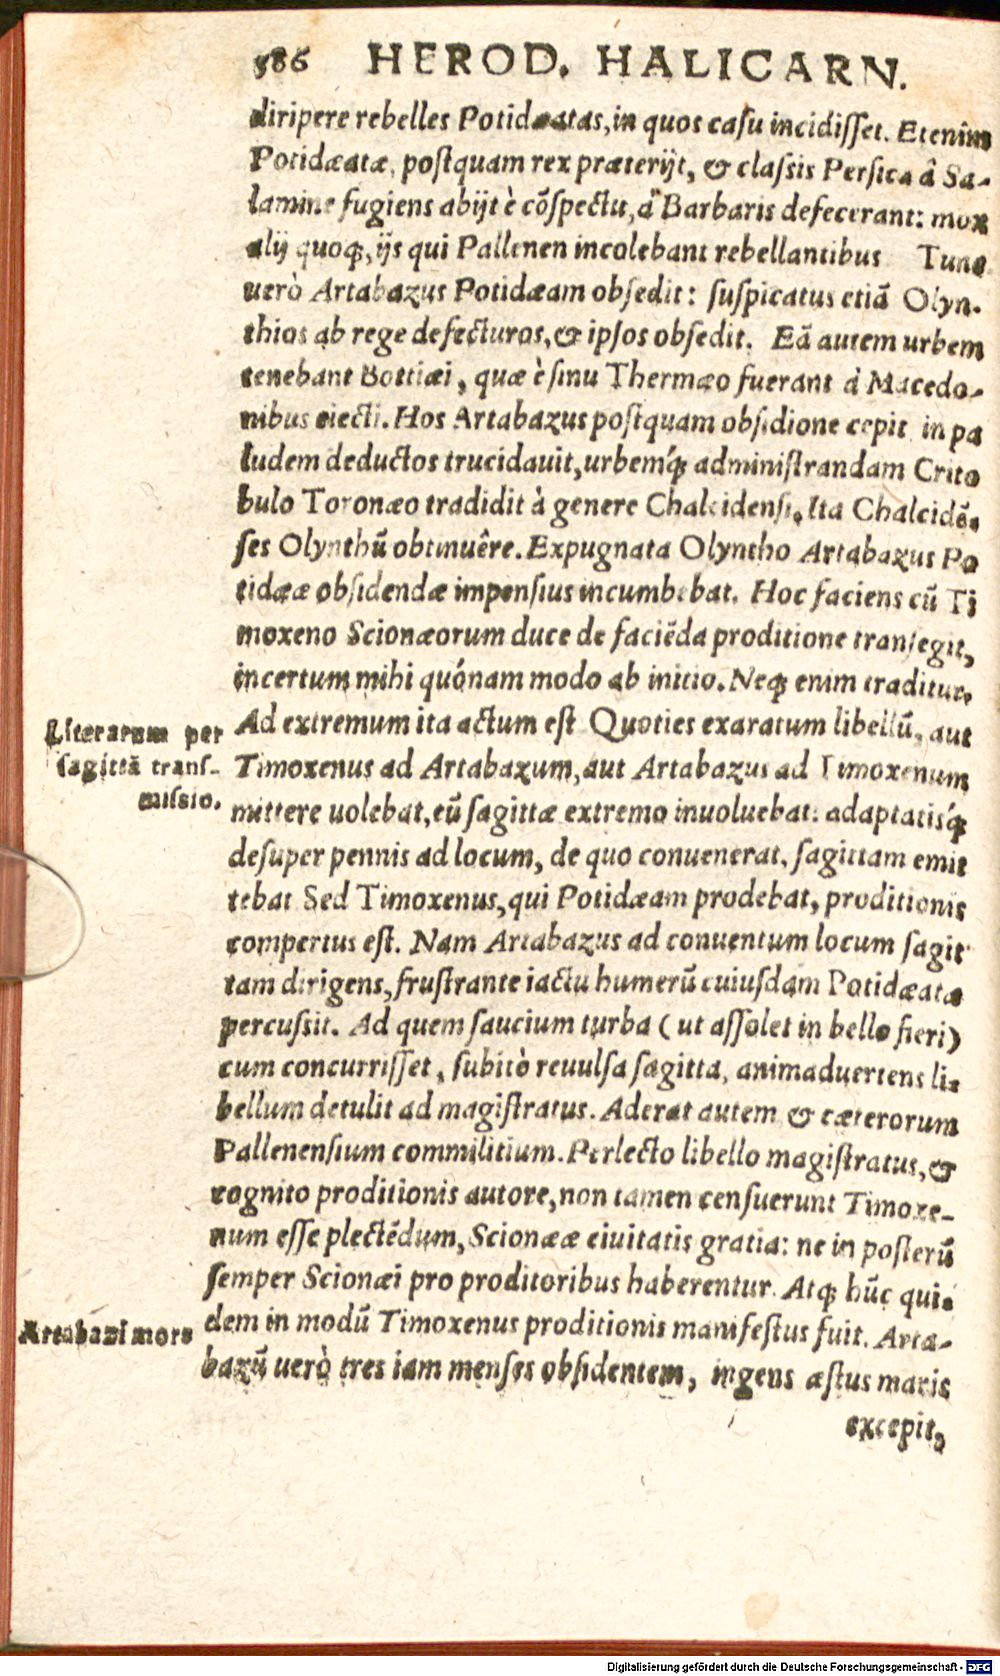 586 HEROD. HALICARN.
diripere rebelles Potidæatas, in quos casu incidisset. Etenim
Potidæatæ, postquam rex præterijt, & classis Persica â Sa-
lamine fugiens abijt è cōspectu, â Barbaris defecerant: mox
alij quoq́;, ijs qui Pallenen incolebant rebellantibus Tunc
uerò Artabazus Potidæam obsedit: suspicatus etiā Olyn-
thios ab rege defecturos, & ipsos obsedit. Eā autem urbem
tenebant Bottiæi, quæ è sinu Thermæo fuerant à Macedo-
nibus eiecti. Hos Artabazus postquam obsidione cepit in pa
ludem deductos trucidauit, urbemq́; administrandam Crito
bulo Toronæo tradidit à genere Chalcidensi. Ita Chalcidē-
ses Olynthū obtinuêre. Expugnata Olyntho Artabazus Po
tidææ obsidendæ impensius incumbebat. Hoc faciens cū Ti
moxeno Scionæorum duce de faciēda proditione transegit,
incertum mihi quónam modo ab initio. Neq; enim traditur.
Ad extremum ita actum est Quoties exaratum libellū, aut
Literarum per
sagittā trans-
missio.
Timoxenus ad Artabazum, aut Artabazus ad Timoxenum
mittere uolebat, eū sagittæ extremo inuoluebat: adaptatisq́;
desuper pennis ad locum, de quo conuenerat, sagittam emit
tebat Sed Timoxenus, qui Potidæam prodebat, proditionis
compertus est. Nam Artabazus ad conuentum locum sagit
tam dirigens, frustrante iactu humerū cuiusdam Potidæatæ
percussit. Ad quem saucium turba ( ut assolet in bello fieri)
cum concurrisset, subitò reuulsa sagitta, animaduertens li-
bellum detulit ad magistratus. Aderat autem & cæterorum
Pallenensium commilitium. Perlecto libello magistratus, &
cognito proditionis autore, non tamen censuerunt Timoxe-
num esse plectēdum, Scionææ ciuitatis gratia: ne in posterū
semper Scionæi pro proditoribus haberentur. Atq; hūc qui-
dem in modū Timoxenus proditionis manifestus fuit. Arta-
Artabazi mors
bazū uerò tres iam menses obsidentem, ingens æstus maris
excepit,
Digitalisierung gefördert durch die Deutsche Forschungsgemeinschaft - DFG